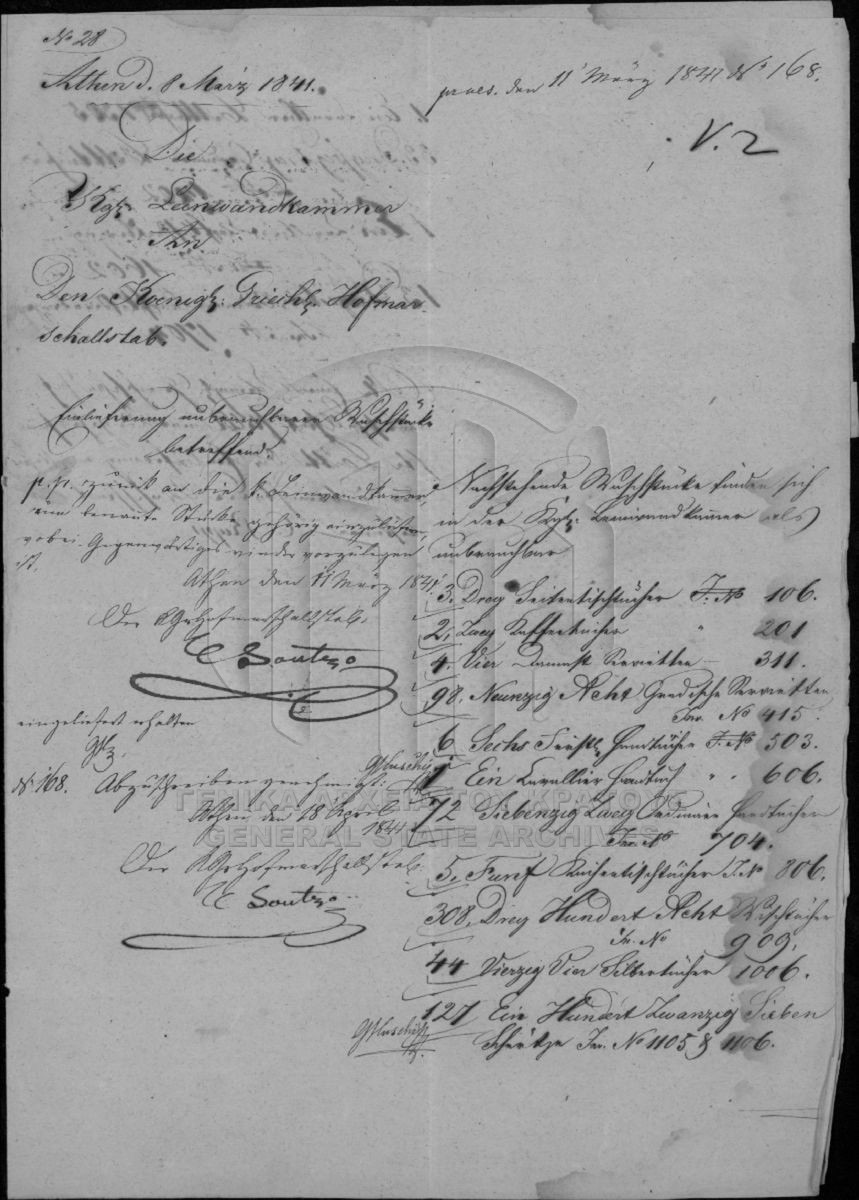 No 28
Athen d. 8 März 1841.
praes. den 11' März 1841 No 168.
V. 2
Die
Kgh. Leinwandkammer
An
Den Koenigh. Griechh. Hofmar-
schallstab.
Einlieferung unbrauchbarer Waschstücke
betreffend.
p. p. zurück an die k. Leinwandkammer,
um benannte Stücke gehörig einzuliefern,
wobei Gegenwärtiges wieder vorzulegen
ist.
Athen den 11 März 1841.
Der KGrHofmarschallstab.
C Soutzo
eingeliefert erhalten
No 168. Abzuschreiben genehmigt:
Athen den 18 April
1841
Der KGrHofmarschallstab
C Soutzo
Nachstehende Waschstücke finden sich
in der Kgh. Leinwandkammer als
unbrauchbar
3. Drey Seitentischtücher J. No 106.
2. Zwey Kaffeetücher " 201
4. Vier Damast Servietten — 311.
98. Neunzig Acht Servietten
Inv. No 415.
6 Sechs Handtücher J. No 503.
1 Ein Cavallier Handtuch " " 606.
72 Siebenzig Zwey Ordinäre Handtücher
Inv. No 704.
5. Fünf Küchentischtücher J. No 806.
308. Drey Hundert Acht Wischtücher
In. No 909.
44 Vierzig Vier Silbertücher 1006.
127 Ein Hundert Zwanzig Sieben
Schürtze Inv. No 1105 & 1106.
ΓΕΝΙΚΑ ΑΡΧΕΙΑ ΤΟΥ ΚΡΑΤΟΥΣ
GENERAL STATE ARCHIVES